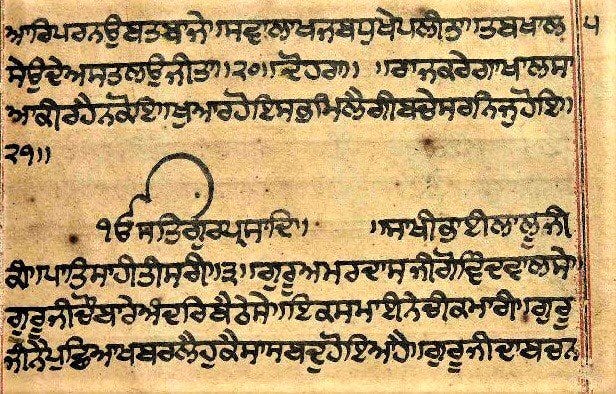 ਆਰਿਪਰਨਉਬਤਬਾਜੇ॥ਸਵਾਲਾਖਜਬਧੁਖੇਪਲੀਲਾ॥ਤਬਖਾਲ ੫
ਸੇਉਦੇਅਸਤਲਉਜੀਤਾ॥੨੦॥ਦੋਹਰਾ॥ ॥ਰਾਜਕਰੇਗਾਖਾਲਸਾ
ਆਕੀਰਹੈਨਕੋਇ॥ਖੁਆਰਹੋਇਸਭਮਿਲੈਗੀਬਚੇਸਰਨਿਜੁਹੋਇ॥
੨੧॥
ੴਸਤਿਗੁਰਪ੍ਰਸਾਦਿ॥ ॥ਸਾਖੀਭਾਈਲਾਲੂਜੀ
ਕੀ॥ਪਾਤਿਸਾਹੀਤੀਸਰੀ॥੩॥ਗੁਰੂਅਮਰਦਾਸਜੀਗੋਇੰਦਵਾਲਸੇ॥
ਗੁਰੂਜੀਚੌਬਾਰੇਅੰਦਰਿਬੈਠੇਸੇ॥ਇਕਸਮਾਈਨੇਚੀਕਮਾਰੀ॥ਗੁਰੂ
ਜੀਨੈਪੁਛਿਆਖਬਰਲੈਹੁਕੈਸਾਸਬਦੁਹੋਇਆਹੈ॥ਗੁਰੂਜੀਦਾਬਚਨ